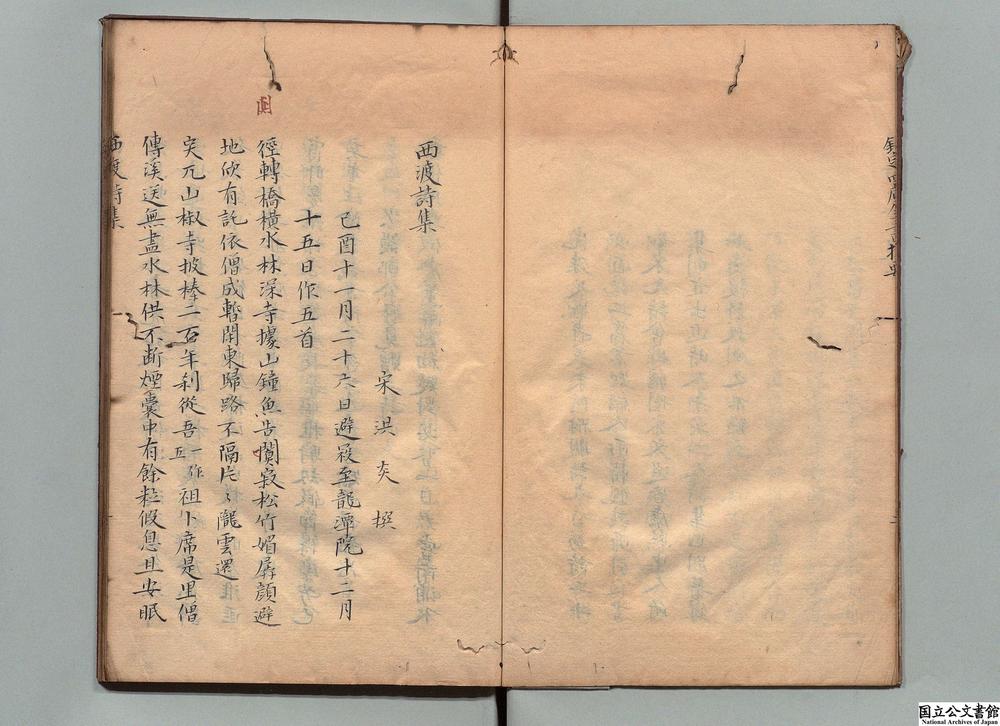 西渡詩集
宋洪炎撰
己酉十一月二十六日避寇至龍潭院十二月
十五日作五首
徑轉橋橫水林深寺據山鐘魚告闃寂松竹媚孱顏避
地欣有託依僧成暫閑東歸路不隔片〻隴雲還
突兀山椒寺披榛二百年刹從吾一作五祖卜席是里僧
傳溪送無盡水林供不斷煙囊中有餘粒假息且安眠
西渡詩集
一
国立公文書館
National Archives of Japan